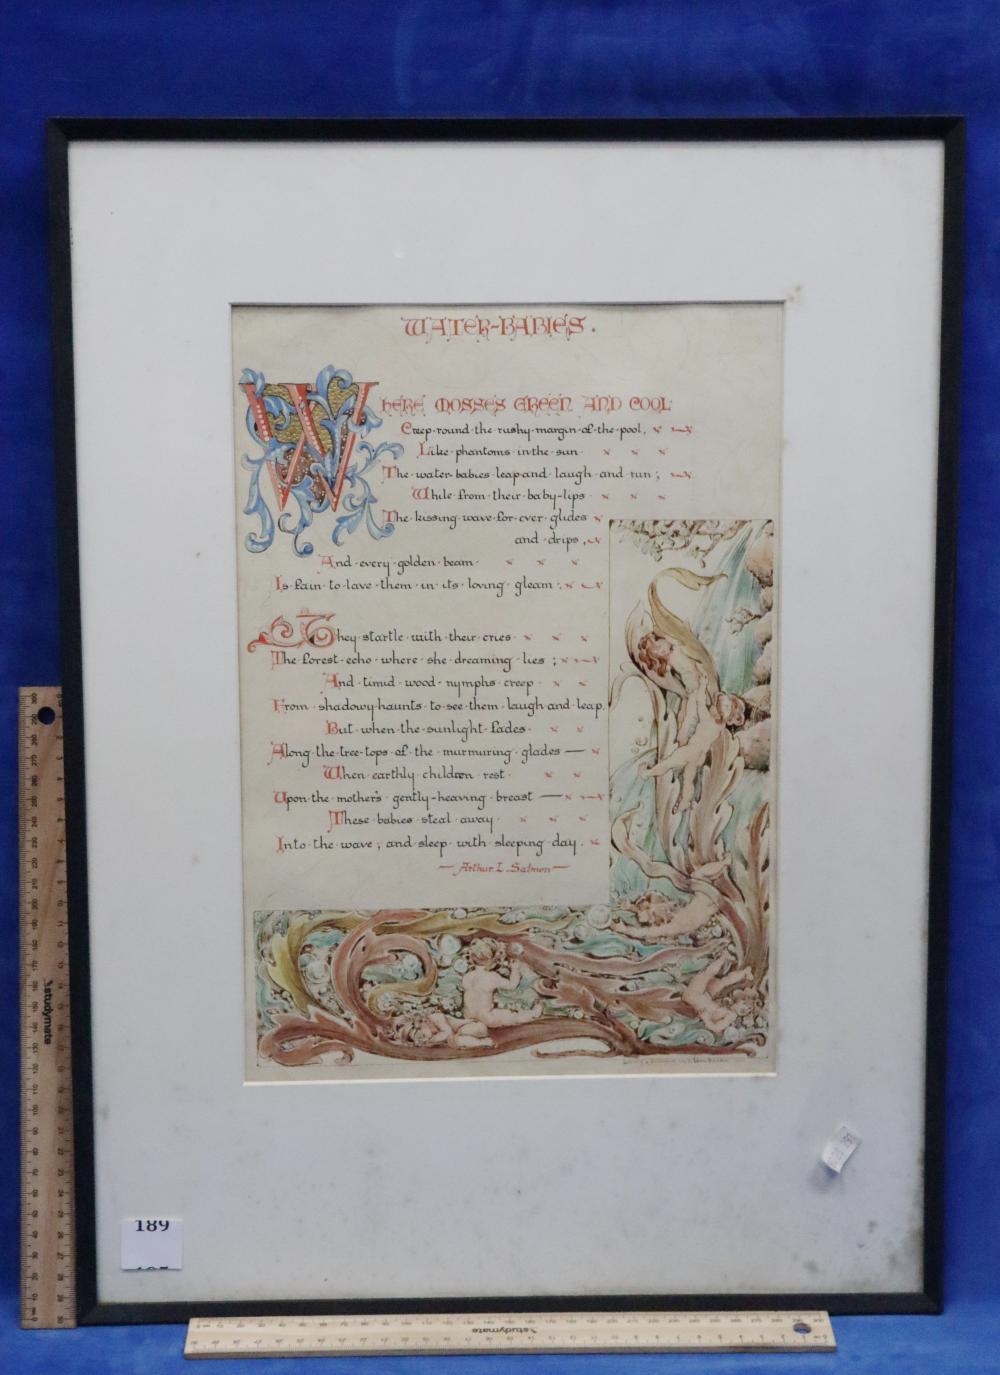 WATER-BABIES.
WHERE MOSSES GREEN AND COOL
Creep·round·the·rushy·margin·of·the·pool,
Like·phantoms·in·the·sun·
The·water·babies·leap·and·laugh·and·run;
While·from·their·baby-lips·
The·kissing·wave·for·ever·glides
and·drips,
And·every·golden·beam·
Is·fain·to·lave·them·in·its·loving·gleam·
They·startle·with·their·cries·
The·forest·echo·where·she·dreaming·lies;
And·timid·wood·nymphs·creep·
From·shadowy·haunts·to·see·them·laugh·and·leap.
But·when·the·sunlight·fades·
Along·the·tree·tops·of·the·murmuring·glades—
When·earthly·children·rest·
Upon·the·mother's·gently-heaving·breast—
These·babies·steal·away·
Into·the·wave; and·sleep·with·sleeping·day.
—Arthur L. Salmon—
189
studymate
studymate